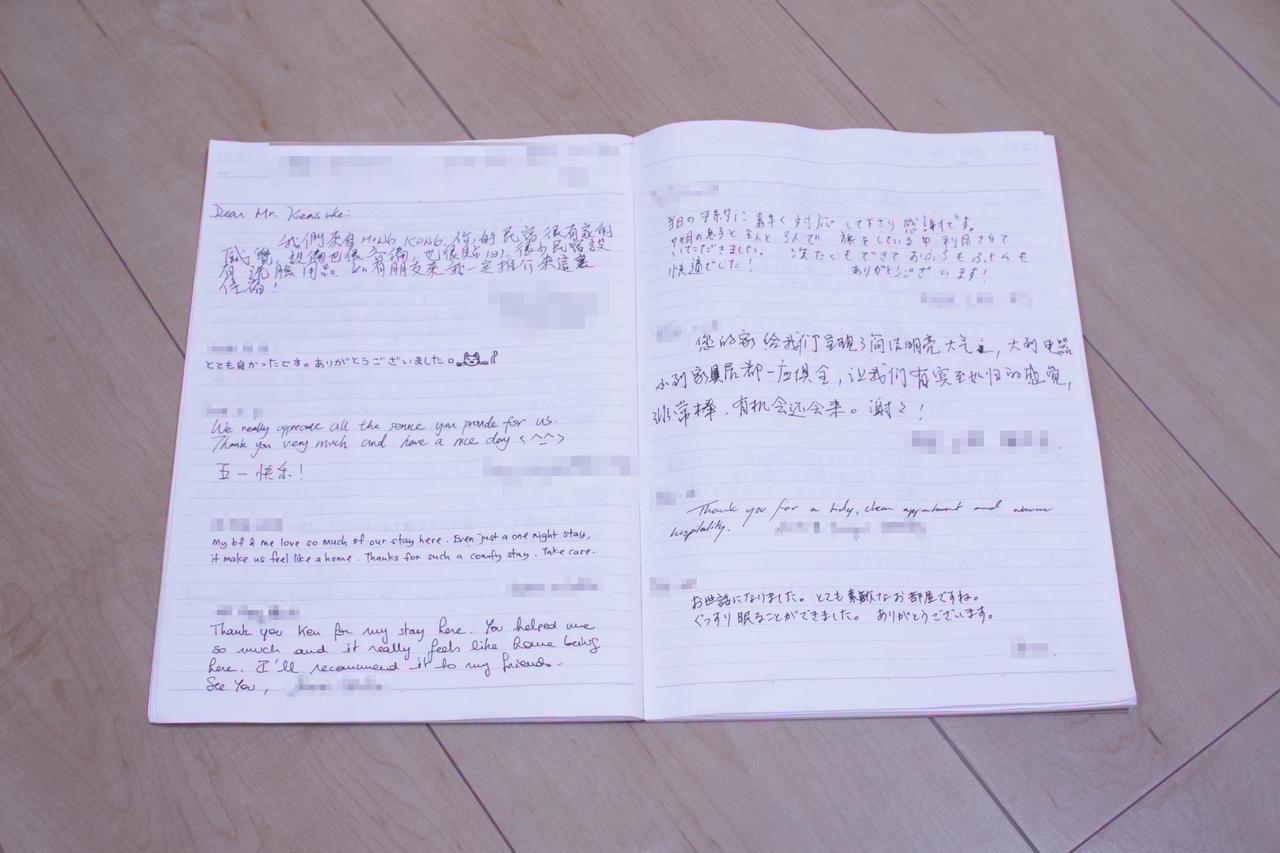 Dear Mr. Kensuke:
我們來自HONG KONG,你的民宿很有家的
感覺,設備也很齊備,也很貼心,很少民宿設
有洗臉用品.如有朋友來我一定推介來這裏
停留!
とても良かったです。ありがとうございました。
We really appreciate all the service you provide for us.
Thank you very much and have a nice day. <^_^>
五一快乐!
My bf & me love so much of our stay here. Even just a one night stay,
it make us feel like a home. Thanks for such a comfy stay. Take care.
Thank you Ken for my stay here. You helped me
so much and it really feels like home being
here. I'll recommend it to my friends.
See You,
当日の予約に素早く対応して下さり感謝です。
ヶ月の息子と主人と3人で旅をしている中利用させて
いただきました。次たくもできておふろもふとんも
快適でした! ありがとうございます!
您的家给我们呈现了简洁明亮大气,大到电器
小到家具居都一应俱全,让我们有宾至如归的感觉,
非常棒,有机会还会来。谢々!
Thank you for a tidy, clean appartment and warm
hospitality.
お世話になりました。とても素敵なお部屋ですね。
ぐっすり眠ることができました。ありがとうございます。